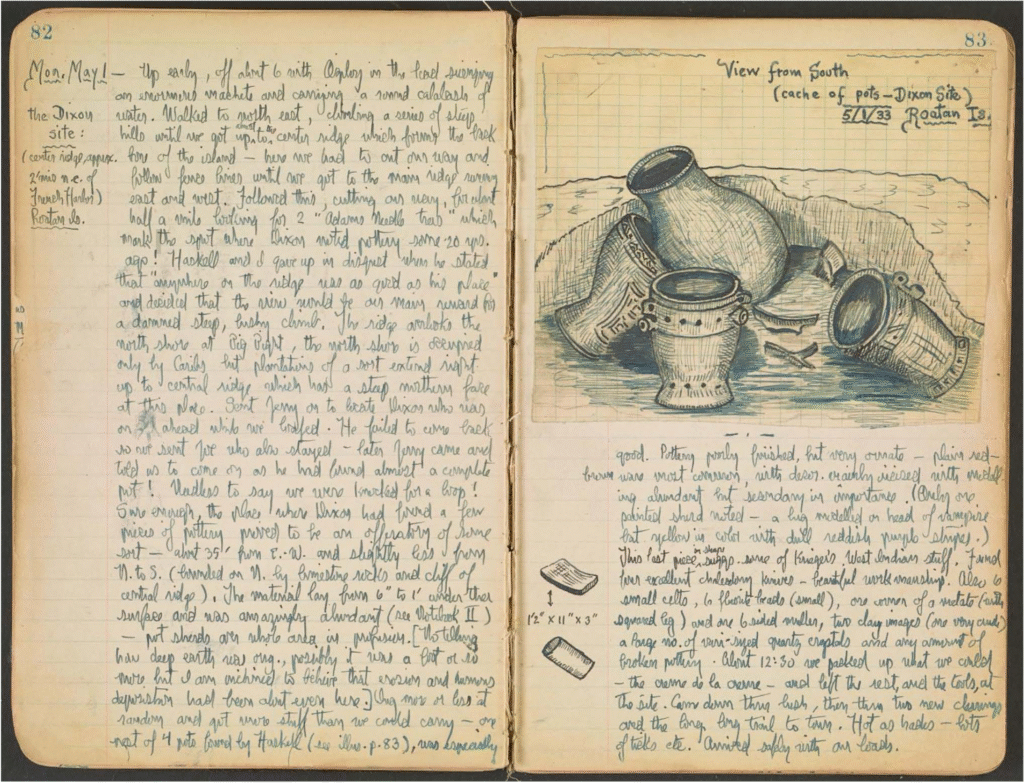 82
Mon. May 1 — Up early, off about 6 with Dayboy in the lead swinging
an enormous machete and carrying a round calabash of
water. Walked to north east, climbing a series of steep
hills until we got up to the center ridge which forms the back
bone of the island — here we had to cut our way and
follow fence lines until we got to the main ridge running
east and west. Followed this, cutting our way, for about
half a mile looking for 2 "Adams Needle trees" which
mark the spot where Dixon noted pottery some 20 yrs.
ago! Haskell and I gave up in disgust when he stated
that "anywhere on the ridge was as good as his place"
and decided that the view would be our main reward for
a damned steep, bushy climb. The ridge overlooks the
north shore at Big Bight, the north shore is occupied
only by Caribs but plantations of a sort extend right
up to central ridge which has a steep northern face
at this place. Sent Jerry on to locate Dixon who was
on ahead while we loafed. He failed to come back
so we sent Joe who also stayed — later Jerry came and
told us to come on as he had found almost a complete
pot! Needless to say we were knocked for a loop!
Sure enough, the place where Dixon had found a few
pieces of pottery proved to be an offeratory of some
sort — about 35' from E.-W. and slightly less from
N. to S. (bounded on N. by limestone rocks and cliff of
central ridge). The material lay from 6" to 1' under the
surface and was amazingly abundant (see Notebook II)
— pot sherds over whole area in profusion. [No telling
how deep earth was orig., possibly it was a foot or so
more but I am inclined to believe that erosion and humus
deposition had been about even here.] Dug more or less at
random and got more stuff than we could carry — one
nest of 4 pots found by Haskell (see illus. p. 83), was especially
the Dixon
site:
(center ridge, approx.
2 mis n.e. of
French Harbor)
Roatan Is.
83
View from South
(cache of pots — Dixon Site)
5/1/33 Roatan Is.
good. Pottery poorly finished, but very ornate — plain red-
brown ware most common, with decor. crudely incised with modell-
ing abundant but secondary in importance. (Only one
painted sherd noted — a lug modelled as head of vampire
bat yellow in color with dull reddish purple stripes.)
This last piece in shape sugg. some of Krieger's West Indian stuff. Found
four excellent chalcedony knives — beautiful workmanship. Also 6
small celts, 6 fluorite beads (small), one corner of a metate (with
squared leg) and one 6 sided muller, two clay images (one very crude)
a large no. of vari-sized quartz crystals and any amount of
broken pottery. About 12:30 we packed up what we could
— the creme de la creme — and left the rest, and the tools, at
the site. Came down thru bush, then thru two new clearings
and the long, long trail to town. Hot as hades — lots
of ticks etc. Arrived safely with our loads.
1½" x 11" x 3"